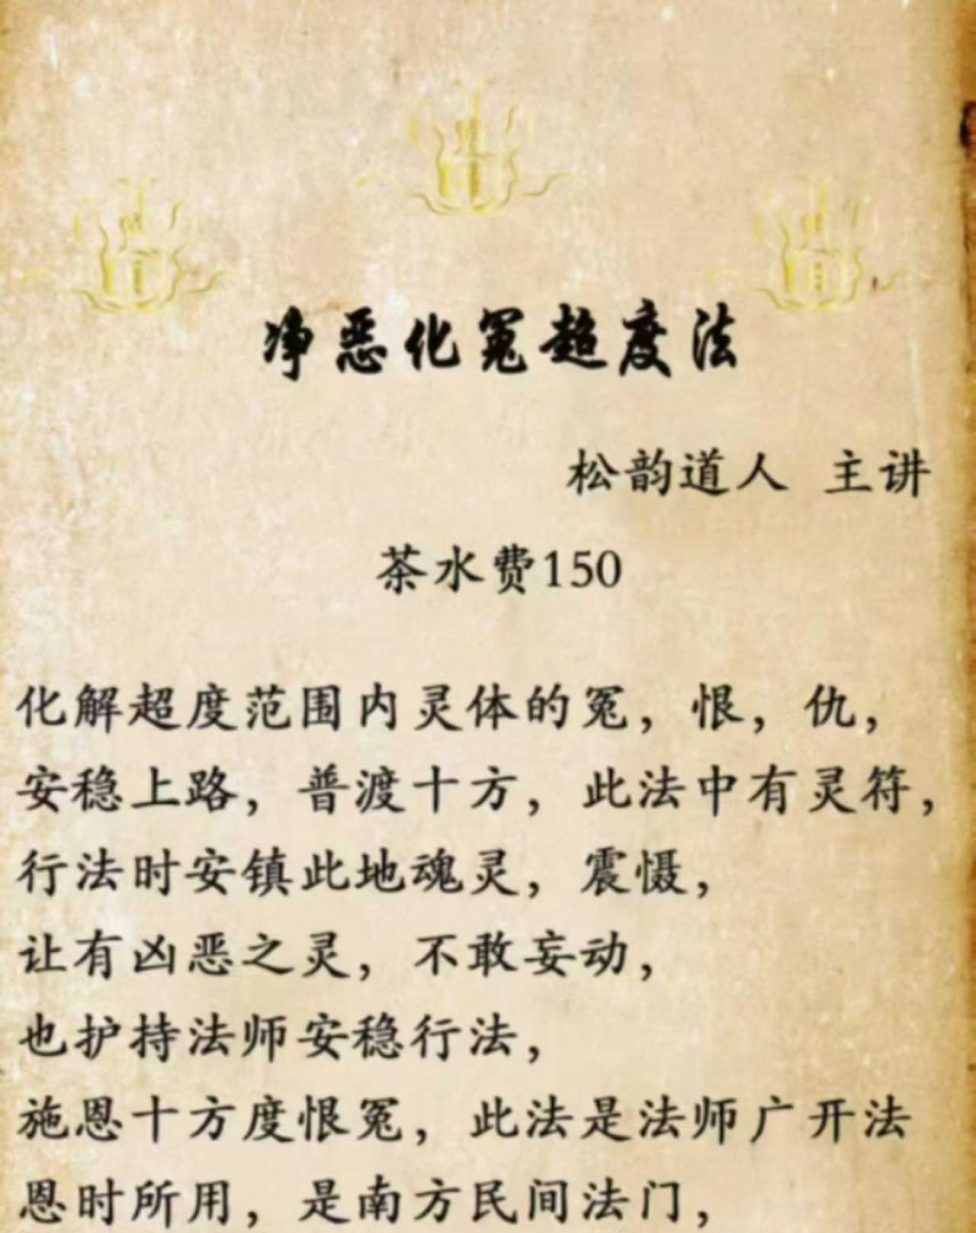 净恶化冤超度法
松韵道人 主讲
茶水费150
化解超度范围内灵体的冤，恨，仇，
安稳上路，普渡十方，此法中有灵符，
行法时安镇此地魂灵，震慑，
让有凶恶之灵，不敢妄动，
也护持法师安稳行法，
施恩十方度恨冤，此法是法师广开法
恩时所用，是南方民间法门，